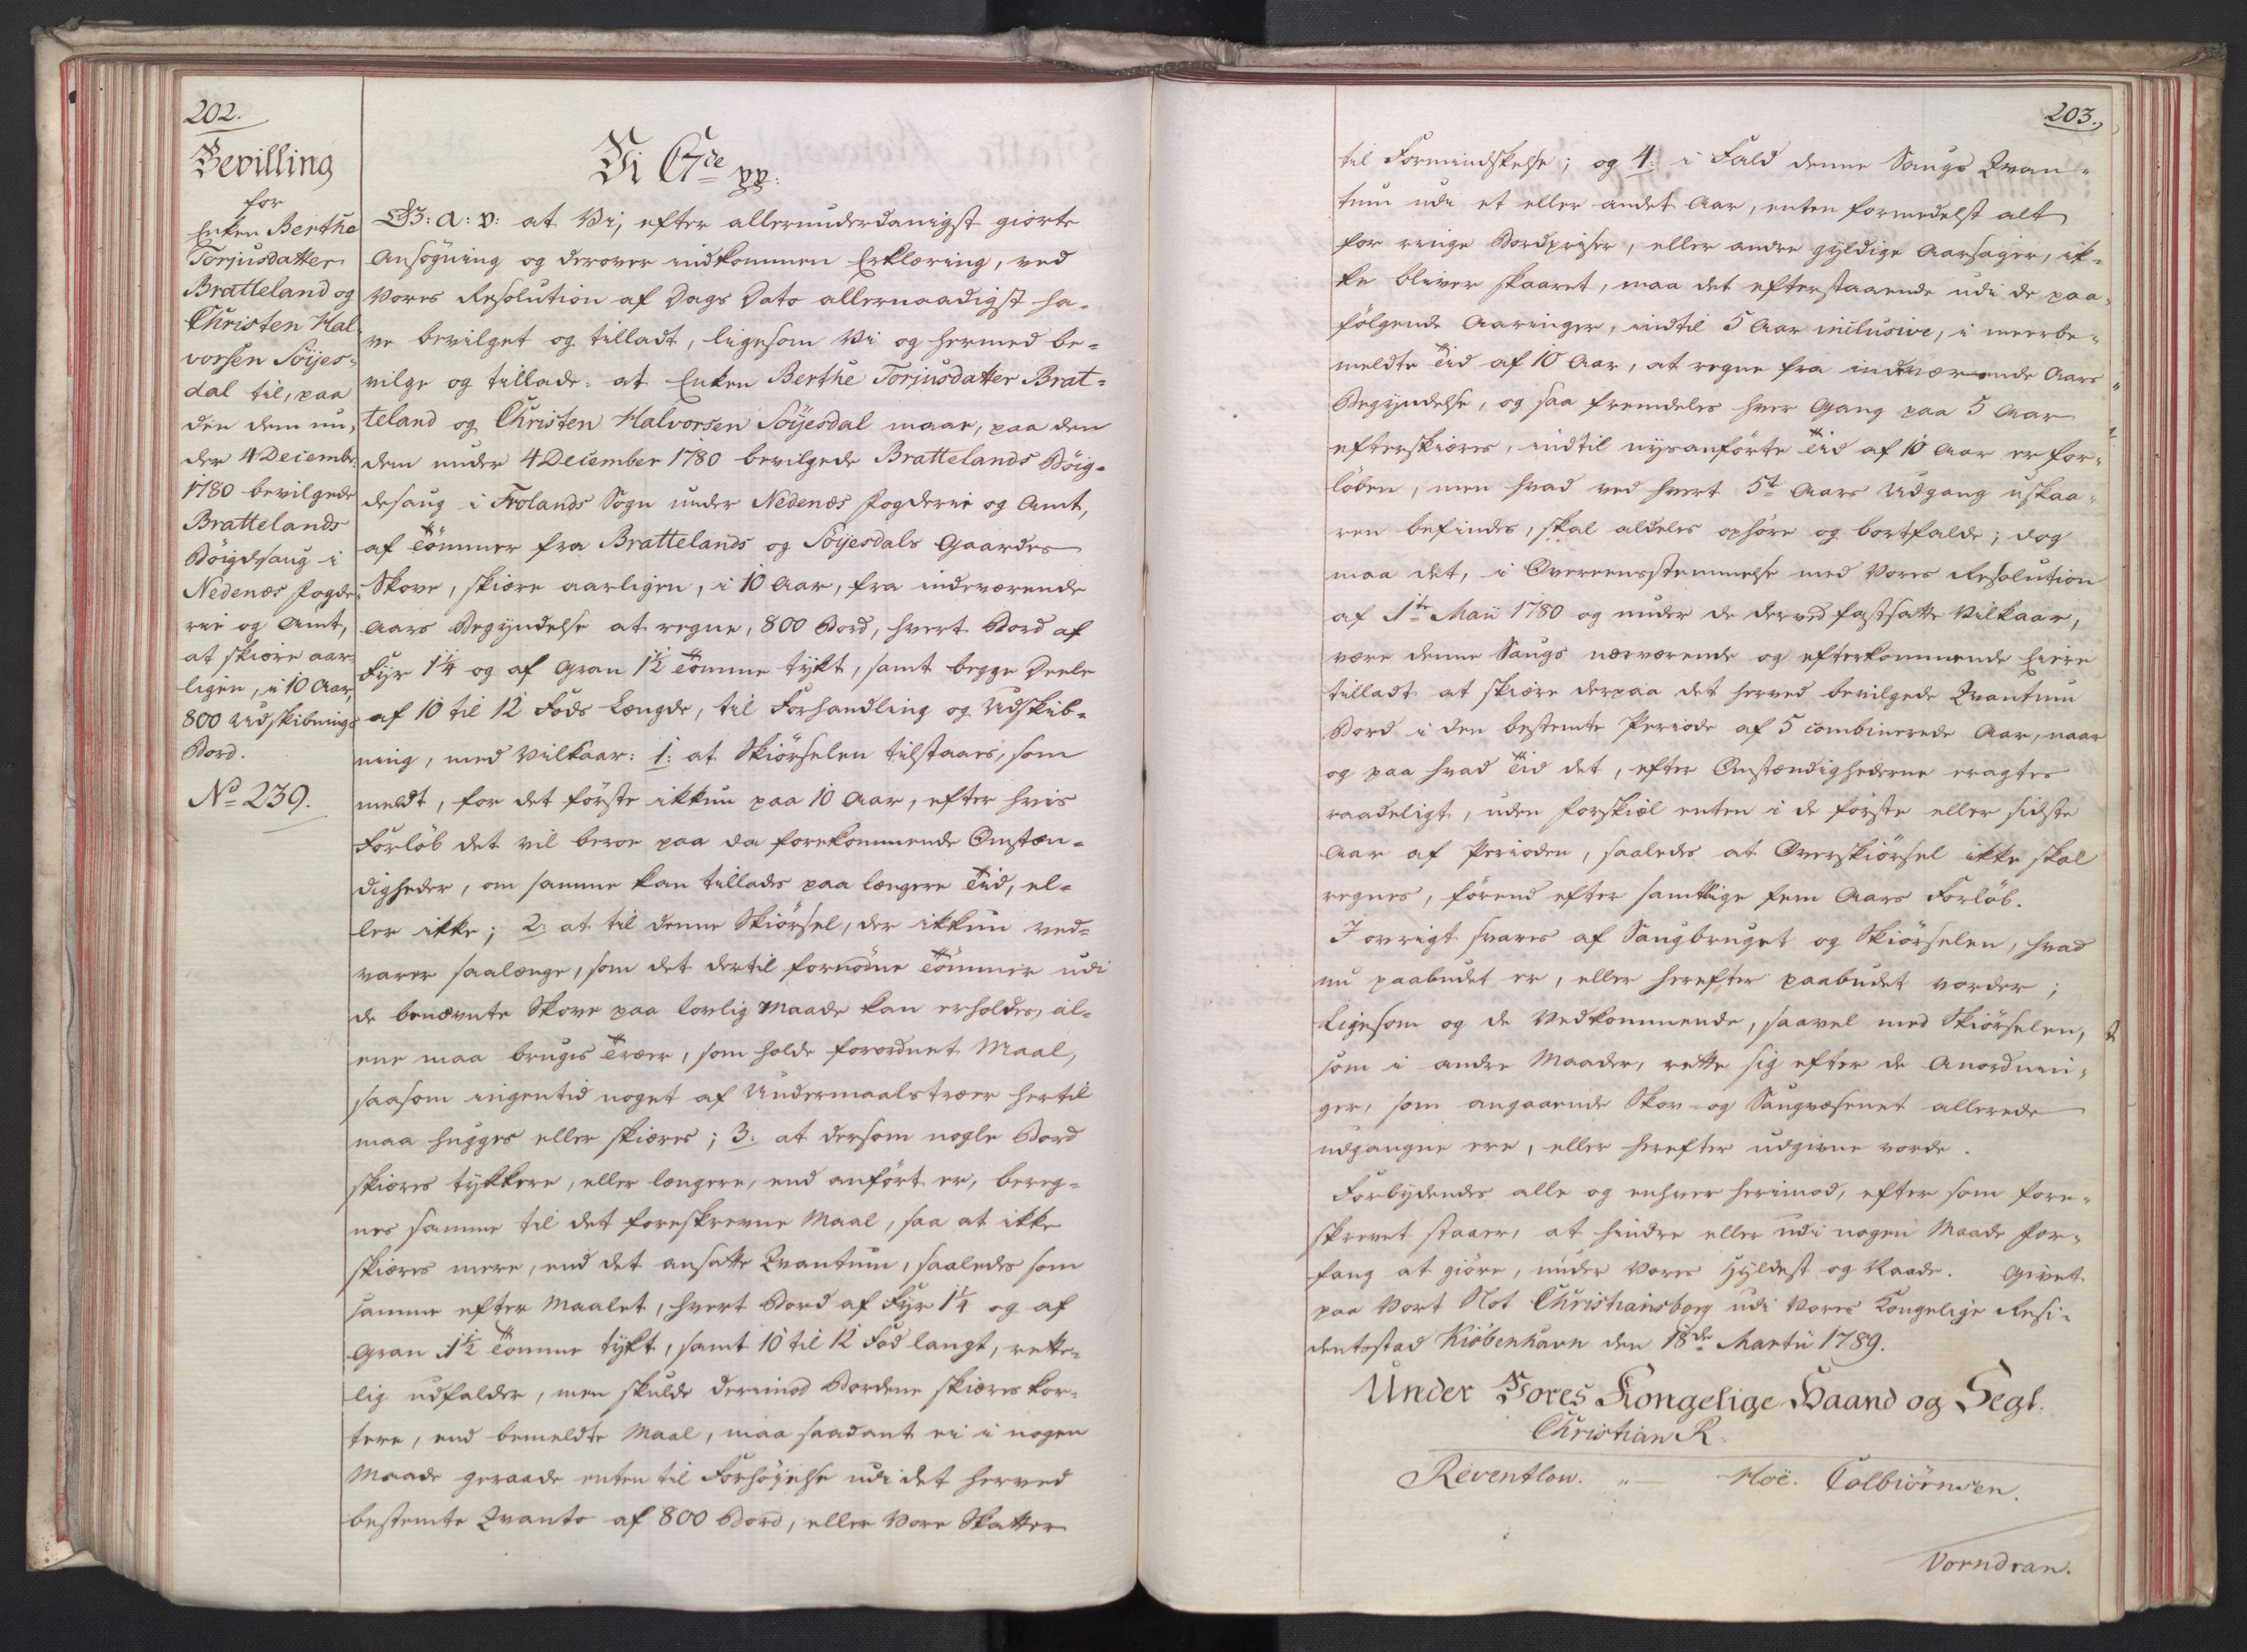 202.
Bevilling
for
Enken Berthe
Torjusdatter
Bratteland og
Christen Hal
vorsen Söijes-
dal til, paa
den dem un-
der 4 Decembr.
1780 bevilgede
Brattelands
Böigdesaug i
Nedenæs Fogde-
rie og Amt,
at skiære aar-
ligen, i 10 Aar,
800 Udskibnings
Bord.
No 239.
Vi C7de pp:
G: A: V: at Vi, efter allerunderdanigst giorte
Ansögning og derover indkommen Erklæring, ved
Vores Resolution af Dags Dato allernaadigst ha-
ve bevilget og tilladt, ligesom Vi og hermed be-
vilge og tillade: at Enken Berthe Torjusdatter Brat-
teland og Christen Halvorsen Söijesdal maae, paa den
dem under 4 December 1780 bevilgede Brattelands Böig-
desaug i Frolands Sogn under Nedenæs Fogderie og Amt,
af Tömmer fra Brattelands og Söijesdals Gaardes
Skove, skiære aarligen, i 10 Aar, fra indeværende
Aars Begyndelse at regne, 800 Bord, hvert Bord af
Fyr 1¼ og af Gran 1½ Tomme tykt, samt begge Deele
af 10 til 12 Fods Længde, til Forhandling og Udskib-
ning, med Vilkaar: 1: at Skiörselen tilstaaes, som
meldt, for det förste ikkun paa 10 Aar, efter hvis
Forlöb det vil beroe paa da forekommende Omstæn-
digheder, om samme kan tillades paa længere Tid, el-
ler ikke; 2: at til denne Skiörsel, der ikkun ved-
varer saalænge, som det dertil fornödne Tömmer udi
de benævnte Skove paa lovlig Maade kan erholdes, al-
ene maa bruges Træer, som holde forordnet Maal,
saasom ingentid noget af Undermaalstræer hertil
maa hugges eller skiæres; 3: at dersom nogle Bord
skiæres tykkere, eller længere, end anfört er, bereg-
nes samme til det foreskrevne Maal, saa at ikke
skiæres mere, end det ansatte Qvantum, saaledes som
samme efter Maalet, hvert Bord af Fyr 1¼ og af
Gran 1½ Tomme tykt, samt 10 til 12 Fod langt, rette-
lig udfalder, men skulde derimod Bordene skiæres kor-
tere, end bemeldte Maal, maa saadant ei i nogen
Maade geraade enten til Forhöyelse udi det herved
bestemte Qvanto af 800 Bord, eller Vore Skatter
203.
til Formindskelse; og 4: i Fald denne Saugs Qvan-
tum udi et eller andet Aar, enten formedelst alt
for ringe Bordpriser, eller andre gyldige Aarsager, ik-
ke bliver skaaret, maa det efterstaaende udi de paa-
fölgende Aaringer, indtil 5 Aar inclusive, i meerbe-
meldte Tid af 10 Aar, at regne fra indeværende Aars
Begyndelse, og saa fremdeles hver Gang paa 5 Aar
efterskiæres, indtil nysanförte Tid af 10 Aar er for-
löben, men hvad ved hvert 5t Aars Udgang uskaa-
ren befindes, skal aldeles ophöre og bortfalde; dog
maa det, i Overeensstemmelse med Vores Resolution
af 1te Maii 1780 og under de derved fastsatte Vilkaar,
være denne Saugs nærværende og efterkommende Eiere
tilladt at skiære derpaa det herved bevilgede Qvantum
Bord i den bestemte Periode af 5 combinerede Aar, naar
og paa hvad Tid det, efter Omstændighederne eragtes
raadeligt, uden Forskiæl enten i de förste eller sidste
Aar af Perioden, saaledes at Overskiörsel ikke skal
regnes, förend efter samtlige fem Aars Forlöb.
I ovrigt svares af Saugbruget og Skiörselen, hvad
nu paabudet er, eller herefter paabudet vorder;
Ligesom og de Vedkommende, saavel med Skiörselen,
som i andre Maader, rette sig efter de Anordnin-
ger, som angaaende Skov- og Saugvæsenet allerede
udgangne ere, eller herefter udgivne vorde.
Forbydendes alle og enhver herimod, efter som fore-
skrevet staaer, at hindre eller udi nogen Maade For-
fang at giöre, under Vores Hyldest og Naade. Givet
paa Vort Slot Christiansborg udi Vores Kongelige Resi-
dentsstad Kiöbenhavn den 18de Martii 1789.
Under Vores Kongelige Haand og Segl.
Christian R.
Reventlow. Hoë. Colbiörnsen.
Vorndran.